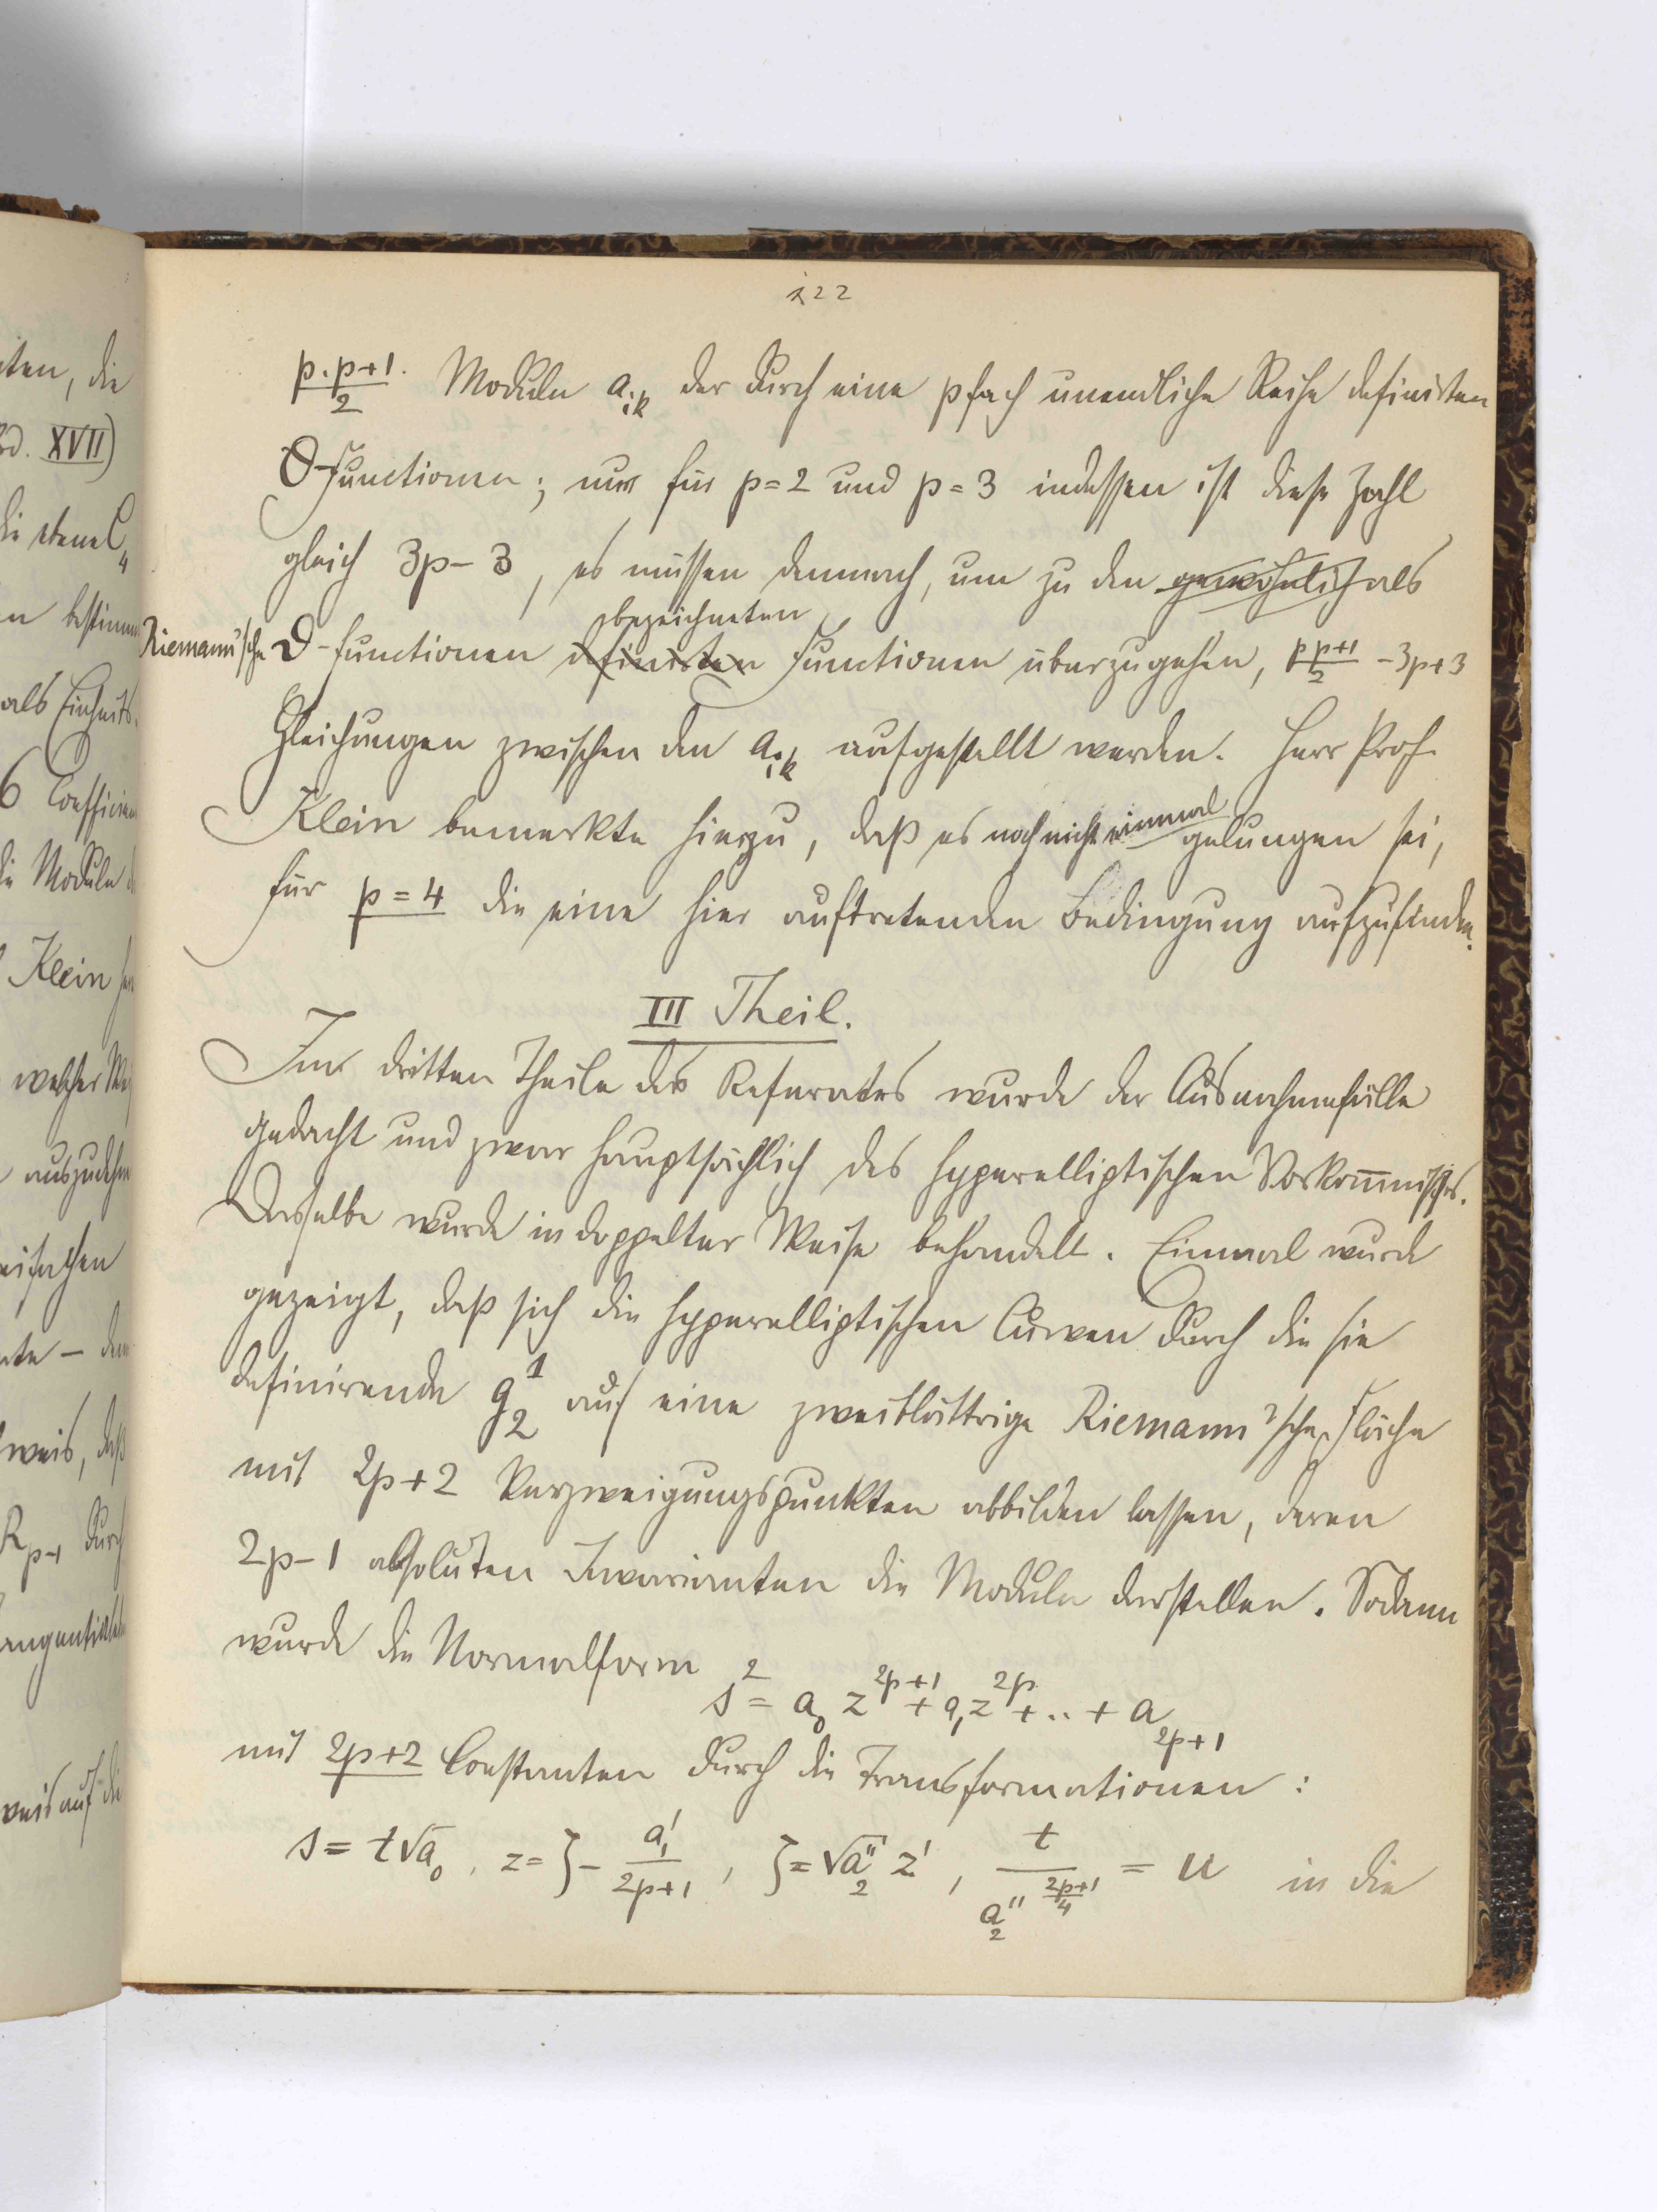 122
p.p+1/2 Moduln a_ik der durch eine pfach unendliche Reihe definirten
Θ-Functionen; nur für p=2 und p=3 indessen ist diese Zahl
gleich 3p-3, es müssen demnach, um zu den gewöhnlich als
Riemann'sche ϑ-functionen definirten bezeichneten Functionen überzugehen, p p+1/2 -3p+3
Gleichungen zwischen den a_ik aufgestellt werden. Herr Prof.
Klein bemerkte hierzu, daß es noch nicht einmal gelungen sei,
für p=4 die eine hier auftretenden Bedingung aufzufinden.
III Theil.
Im dritten Theile des Referates wurde der Ausnahmefälle
gedacht und zwar hauptsächlich des hyperelliptischen Vorkom̅nisses.
Dasselbe wurde in doppelter Weise behandelt. Einmal wurde
gezeigt, daß sich die hyperelliptischen Curven durch die sie
definirende g_2^1 auf eine zweiblättrige Riemann'sche Fläche
mit 2p+2 Verzweigungspunkten abbilden lassen, deren
2p-1 absoluten Invarianten die Moduln darstellen. Sodann
wurde die Normalform
s^2 = a_0 z^{2p+1} + a_1 z^{2p} + .. + a_{2p+1}
mit 2p+2 Constanten durch die Transformationen:
s = t√a_0, z = ζ - a_1'/2p+1, ζ = √a_2'' z', t/a_2''^{2p+1/4} = u in die
ten, die
Bd. XVII)
die ebene C_4
n bestimm
als Einheits
6 Coefficien
die Moduln
Klein
welcher
auszudehn
eifachen
weis, daß
R_{p-1} durch
weis auf die